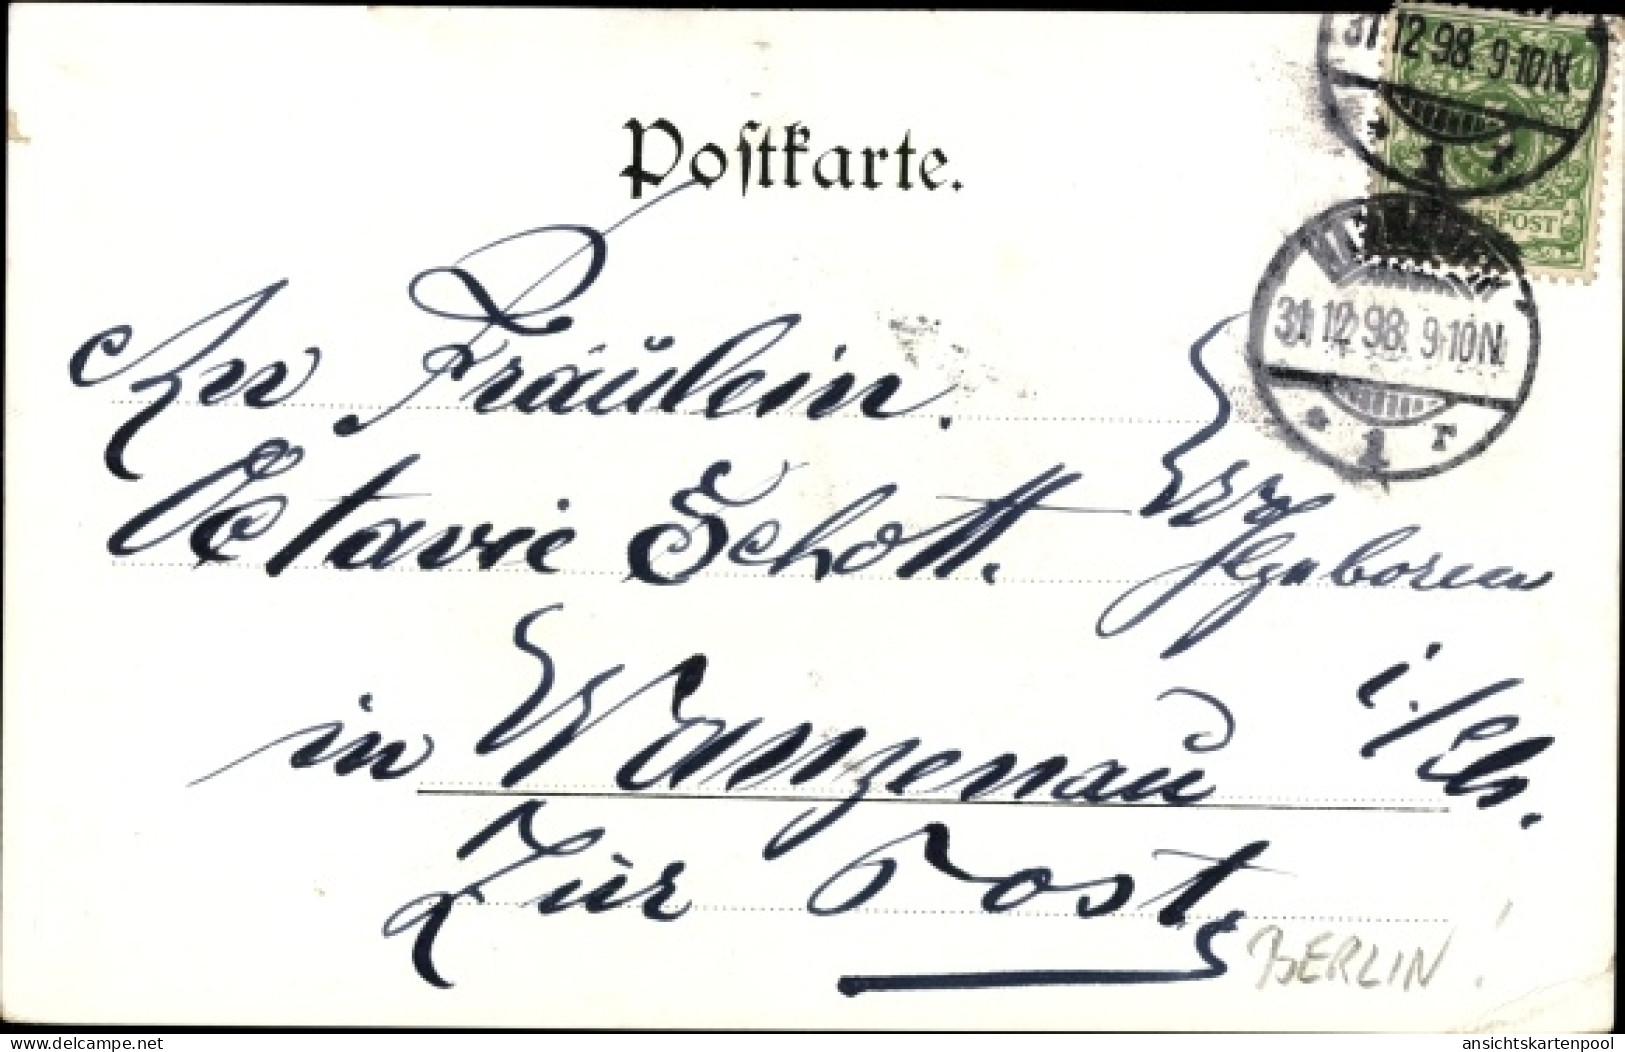 31.12.98. 9-10N.
* 1 r
POST
Postkarte.
31.12.98. 9-10N.
* 1 r
An Fräulein.
Octavie Schott.
in Wanzenau i./Els.
Zur Post
BERLIN!
delcampe.net
ansichtskartenpool